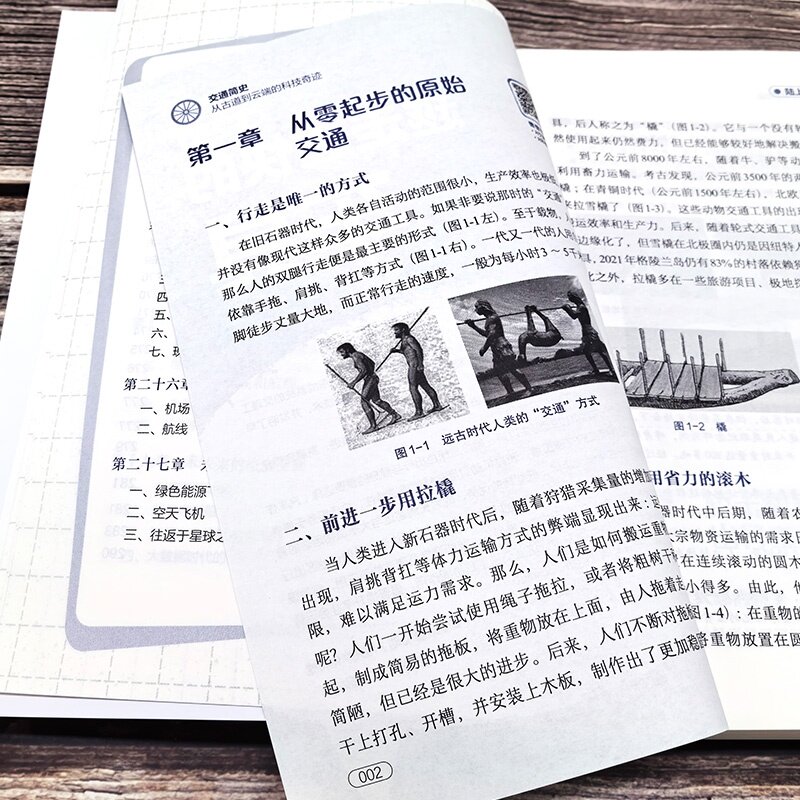 三
四
五、
六、
七、
第二十六章
一、机场
二、航线
第二十七章
一、绿色能源
二、空天飞机
三、往返于星球之
交通简史
从古道到云端的科技奇迹
第一章 从零起步的原始
交通
一、行走是唯一的方式
在旧石器时代，人类各自活动的范围很小，生产效率也极
并没有像现代这样众多的交通工具。如果非要说那时的“交通
那么人的双腿行走便是最主要的形式（图1-1左）。至于载物，
依靠手拖、肩挑、背扛等方式（图1-1右）。一代又一代的人
脚徒步丈量大地，而正常行走的速度，一般为每小时3～5千
图1-1 远古时代人类的“交通”方式
二、前进一步用拉橇
当人类进入新石器时代后，随着狩猎采集量的增
出现，肩挑背扛等体力运输方式的弊端显现出来：
限，难以满足运力需求。那么，人们是如何搬运重物
呢？人们一开始尝试使用绳子拖拉，或者将粗树干
起，制成简易的拖板，将重物放在上面，由人拖着
简陋，但已经是很大的进步。后来，人们不断对拖
干上打孔、开槽，并安装上木板，制作出了更加
002
陆上
具，后人称之为“橇”（图1-2）。它与一个没有
然使用起来仍然费力，但已经能够较好地解决搬
到了公元前8000年左右，随着牛、驴等动
利用畜力运输。考古发现，公元前3500年的两
橇；在青铜时代（公元前1500年左右），北欧
来拉雪橇了（图1-3）。这些动物交通工具的出
运效率和生产力。后来，随着轮式交通工具
边缘化了，但雪橇在北极圈内仍是因纽特人
具，2021年格陵兰岛仍有83%的村落依赖狗
此之外，拉橇多在一些旅游项目、极地探
图1-2 橇
用省力的滚木
器时代中后期，随着农
宗物资运输的需求日
在连续滚动的圆木
小得多。由此，他
图1-4）：在重物的
重物放置在圆